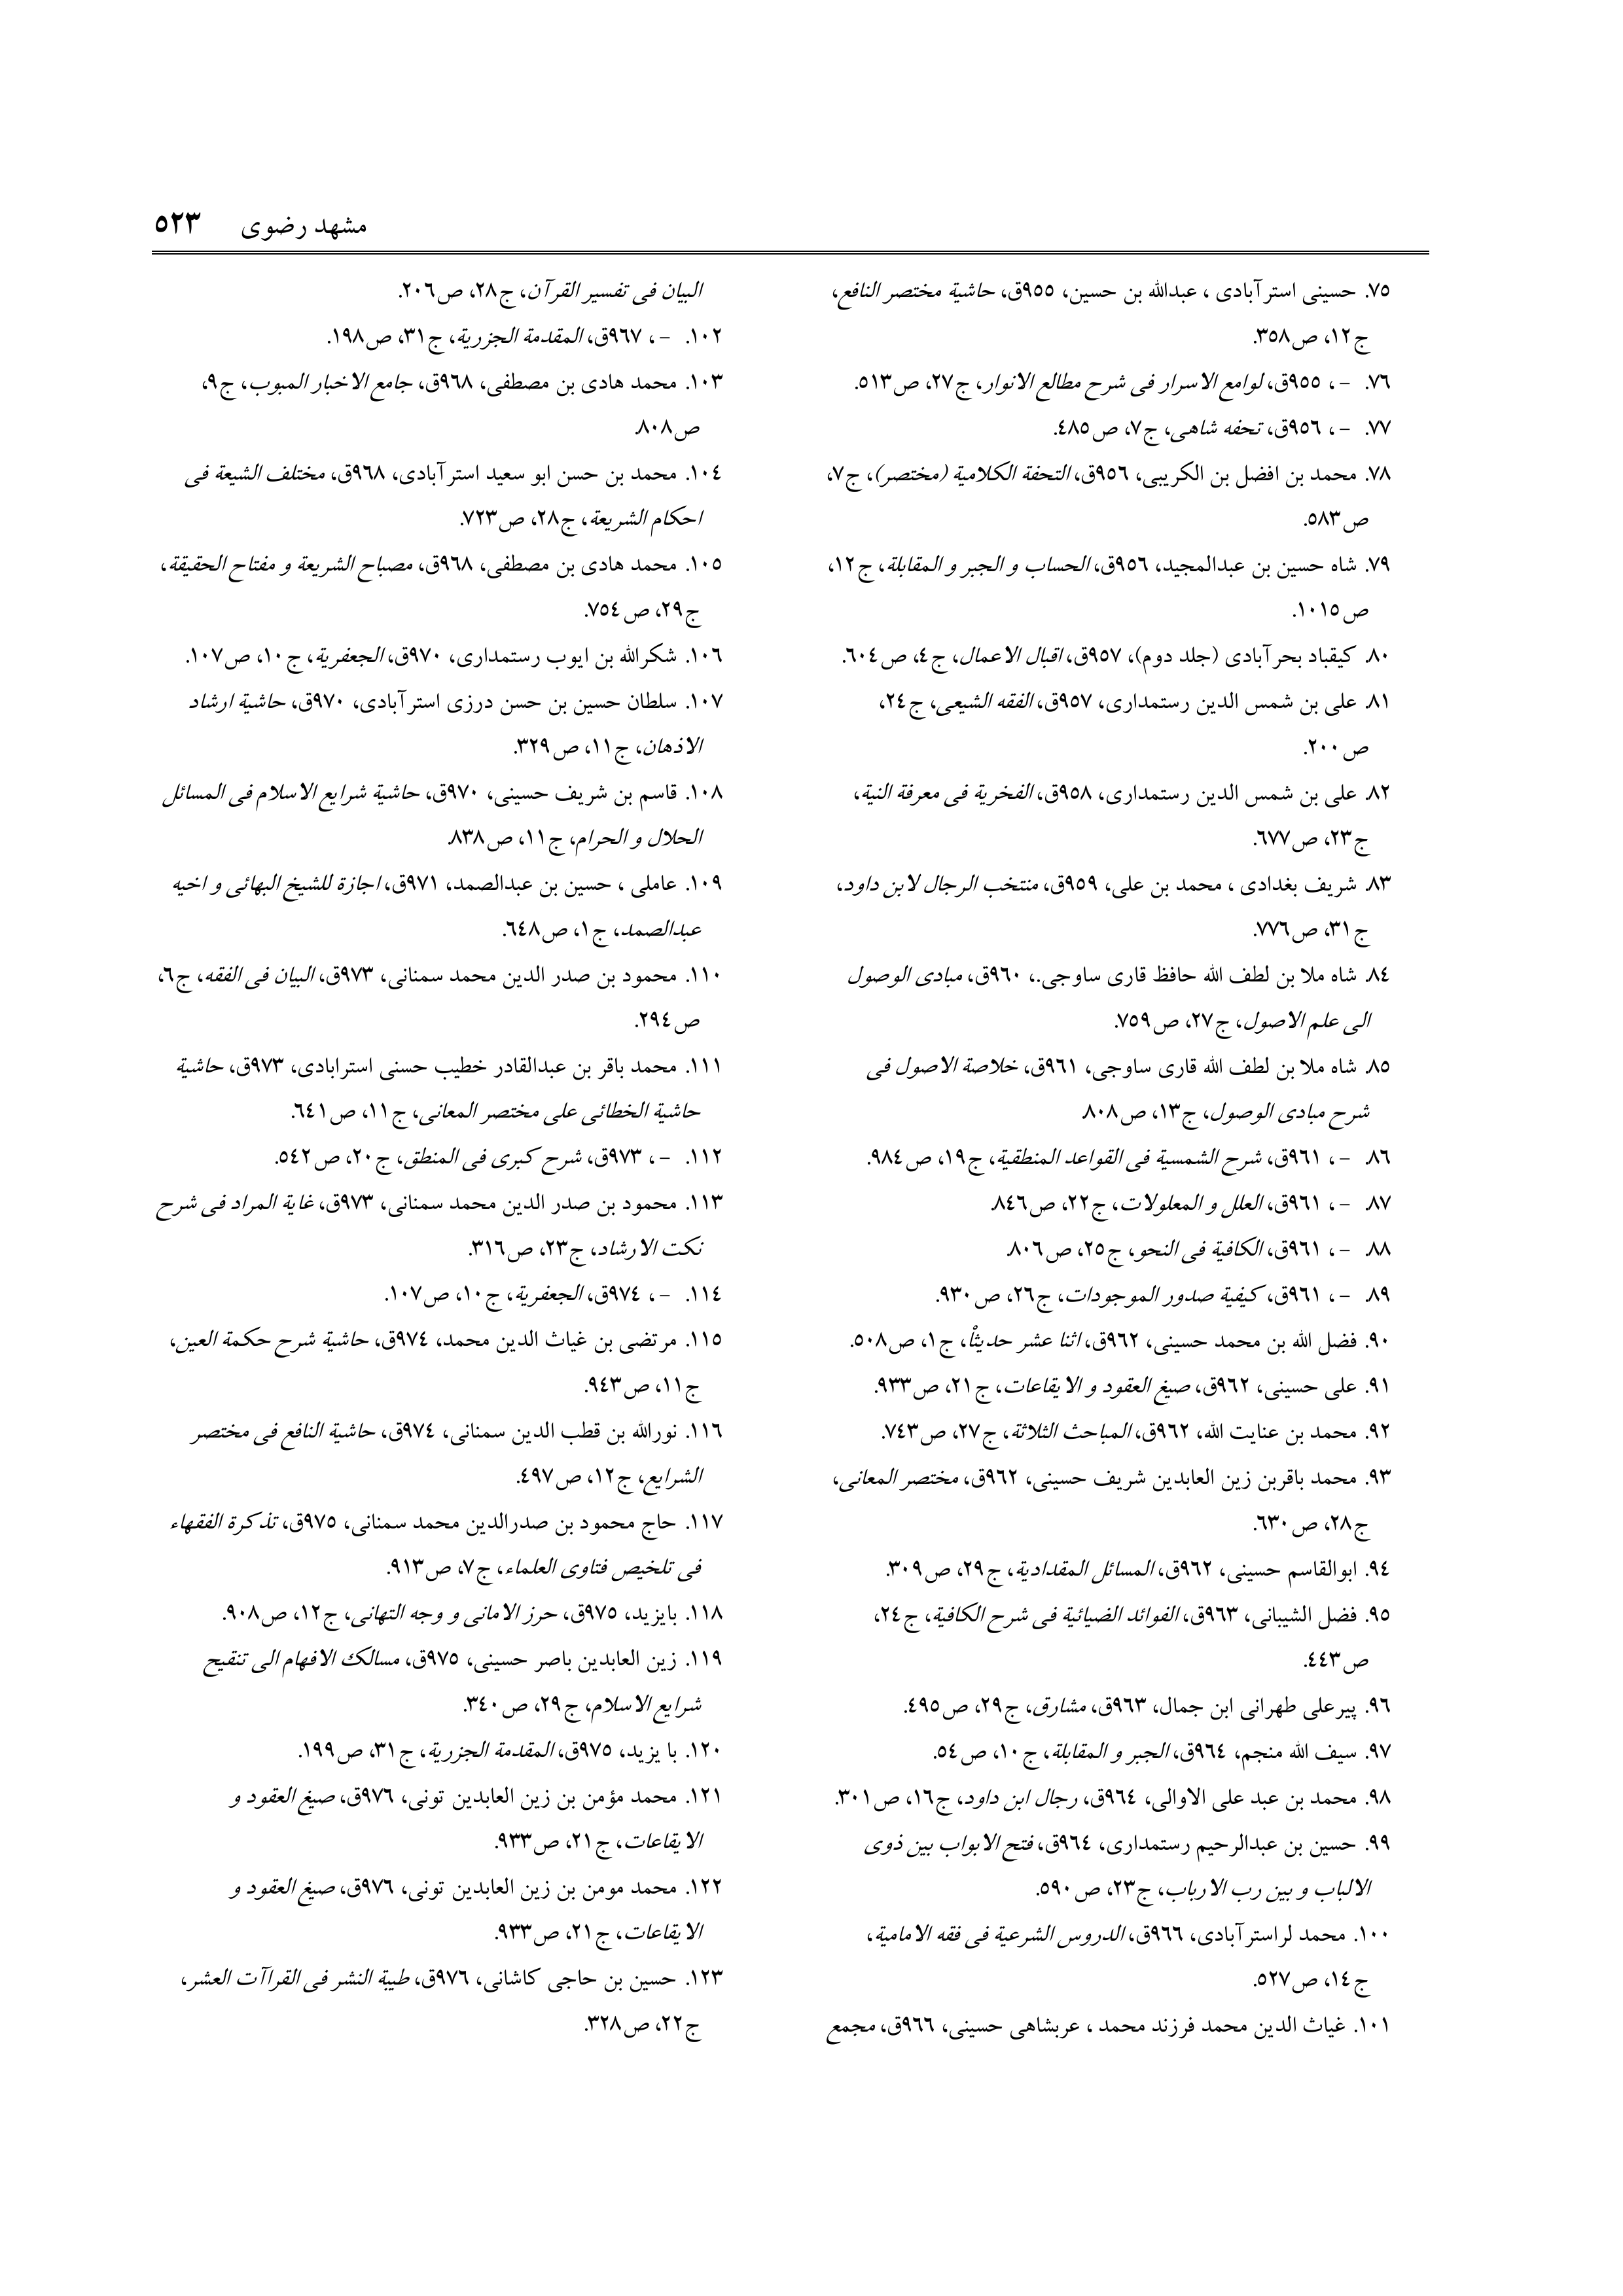 مشهد رضوی ٥٢٣
٧٥. حسینی استرآبادی ، عبدالله بن حسین، ٩٥٥ق، حاشیة مختصر النافع،
ج١٢، ص٣٥٨.
٧٦. -، ٩٥٥ق، لوامع الاسرار فی شرح مطالع الانوار، ج٢٧، ص٥١٣.
٧٧. -، ٩٥٦ق، تحفه شاهی، ج٧، ص٤٨٥.
٧٨. محمد بن افضل بن الکریبی، ٩٥٦ق، التحفة الکلامیة (مختصر)، ج٧،
ص٥٨٣.
٧٩. شاه حسین بن عبدالمجید، ٩٥٦ق، الحساب و الجبر و المقابلة، ج١٢،
ص١٠١٥.
٨٠. کیقباد بحرآبادی (جلد دوم)، ٩٥٧ق، اقبال الاعمال، ج٤، ص٦٠٤.
٨١. علی بن شمس الدین رستمداری، ٩٥٧ق، الفقه الشیعی، ج٢٤،
ص٢٠٠.
٨٢. علی بن شمس الدین رستمداری، ٩٥٨ق، الفخریة فی معرفة النیة،
ج٢٣، ص٦٧٧.
٨٣. شریف بغدادی ، محمد بن علی، ٩٥٩ق، منتخب الرجال لابن داود،
ج٣١، ص٧٧٦.
٨٤. شاه ملا بن لطف الله حافظ قاری ساوجی.، ٩٦٠ق، مبادی الوصول
الی علم الاصول، ج٢٧، ص٧٥٩.
٨٥. شاه ملا بن لطف الله قاری ساوجی، ٩٦١ق، خلاصة الاصول فی
شرح مبادی الوصول، ج١٣، ص٨٠٨.
٨٦. -، ٩٦١ق، شرح الشمسیة فی القواعد المنطقیة، ج١٩، ص٩٨٤.
٨٧. -، ٩٦١ق، العلل و المعلولات، ج٢٢، ص٨٤٦.
٨٨. -، ٩٦١ق، الکافیة فی النحو، ج٢٥، ص٨٠٦.
٨٩. -، ٩٦١ق، کیفیة صدور الموجودات، ج٢٦، ص٩٣٠.
٩٠. فضل الله بن محمد حسینی، ٩٦٢ق، اثنا عشر حدیثاْ، ج١، ص٥٠٨.
٩١. علی حسینی، ٩٦٢ق، صیغ العقود و الایقاعات، ج٢١، ص٩٣٣.
٩٢. محمد بن عنایت الله، ٩٦٢ق، المباحث الثلاثة، ج٢٧، ص٧٤٣.
٩٣. محمد باقربن زین العابدین شریف حسینی، ٩٦٢ق، مختصر المعانی،
ج٢٨، ص٦٣٠.
٩٤. ابوالقاسم حسینی، ٩٦٢ق، المسائل المقدادیة، ج٢٩، ص٣٠٩.
٩٥. فضل الشیبانی، ٩٦٣ق، الفوائد الضیائیة فی شرح الکافیة، ج٢٤،
ص٤٤٣.
٩٦. پیرعلی طهرانی ابن جمال، ٩٦٣ق، مشارق، ج٢٩، ص٤٩٥.
٩٧. سیف الله منجم، ٩٦٤ق، الجبر و المقابلة، ج١٠، ص٥٤.
٩٨. محمد بن عبد علی الاوالی، ٩٦٤ق، رجال ابن داود، ج١٦، ص٣٠١.
٩٩. حسین بن عبدالرحیم رستمداری، ٩٦٤ق، فتح الابواب بین ذوی
الالباب و بین رب الارباب، ج٢٣، ص٥٩٠.
١٠٠. محمد لراسترآبادی، ٩٦٦ق، الدروس الشرعیة فی فقه الامامیة،
ج١٤، ص٥٢٧.
١٠١. غیاث الدین محمد فرزند محمد ، عربشاهی حسینی، ٩٦٦ق، مجمع
البیان فی تفسیر القرآن، ج٢٨، ص٢٠٦.
١٠٢. -، ٩٦٧ق، المقدمة الجزریة، ج٣١، ص١٩٨.
١٠٣. محمد هادی بن مصطفی، ٩٦٨ق، جامع الاخبار المبوب، ج٩،
ص٨٠٨.
١٠٤. محمد بن حسن ابو سعید استرآبادی، ٩٦٨ق، مختلف الشیعة فی
احکام الشریعة، ج٢٨، ص٧٢٣.
١٠٥. محمد هادی بن مصطفی، ٩٦٨ق، مصباح الشریعة و مفتاح الحقیقة،
ج٢٩، ص٧٥٤.
١٠٦. شکرالله بن ایوب رستمداری، ٩٧٠ق، الجعفریة، ج١٠، ص١٠٧.
١٠٧. سلطان حسین بن حسن درزی استرآبادی، ٩٧٠ق، حاشیة ارشاد
الاذهان، ج١١، ص٣٢٩.
١٠٨. قاسم بن شریف حسینی، ٩٧٠ق، حاشیة شرایع الاسلام فی المسائل
الحلال و الحرام، ج١١، ص٨٣٨.
١٠٩. عاملی ، حسین بن عبدالصمد، ٩٧١ق، اجازة للشیخ البهائی و اخیه
عبدالصمد، ج١، ص٦٤٨.
١١٠. محمود بن صدر الدین محمد سمنانی، ٩٧٣ق، البیان فی الفقه، ج٦،
ص٢٩٤.
١١١. محمد باقر بن عبدالقادر خطیب حسنی استرابادی، ٩٧٣ق، حاشیة
حاشیة الخطائی علی مختصر المعانی، ج١١، ص٦٤١.
١١٢. -، ٩٧٣ق، شرح کبری فی المنطق، ج٢٠، ص٥٤٢.
١١٣. محمود بن صدر الدین محمد سمنانی، ٩٧٣ق، غایة المراد فی شرح
نکت الارشاد، ج٢٣، ص٣١٦.
١١٤. -، ٩٧٤ق، الجعفریة، ج١٠، ص١٠٧.
١١٥. مرتضی بن غیاث الدین محمد، ٩٧٤ق، حاشیة شرح حکمة العین،
ج١١، ص٩٤٣.
١١٦. نورالله بن قطب الدین سمنانی، ٩٧٤ق، حاشیة النافع فی مختصر
الشرایع، ج١٢، ص٤٩٧.
١١٧. حاج محمود بن صدرالدین محمد سمنانی، ٩٧٥ق، تذکرة الفقهاء
فی تلخیص فتاوی العلماء، ج٧، ص٩١٣.
١١٨. بایزید، ٩٧٥ق، حرز الامانی و وجه التهانی، ج١٢، ص٩٠٨.
١١٩. زین العابدین باصر حسینی، ٩٧٥ق، مسالک الافهام الی تنقیح
شرایع الاسلام، ج٢٩، ص٣٤٠.
١٢٠. با یزید، ٩٧٥ق، المقدمة الجزریة، ج٣١، ص١٩٩.
١٢١. محمد مؤمن بن زین العابدین تونی، ٩٧٦ق، صیغ العقود و
الایقاعات، ج٢١، ص٩٣٣.
١٢٢. محمد مومن بن زین العابدین تونی، ٩٧٦ق، صیغ العقود و
الایقاعات، ج٢١، ص٩٣٣.
١٢٣. حسین بن حاجی کاشانی، ٩٧٦ق، طیبة النشر فی القراآت العشر،
ج٢٢، ص٣٢٨.